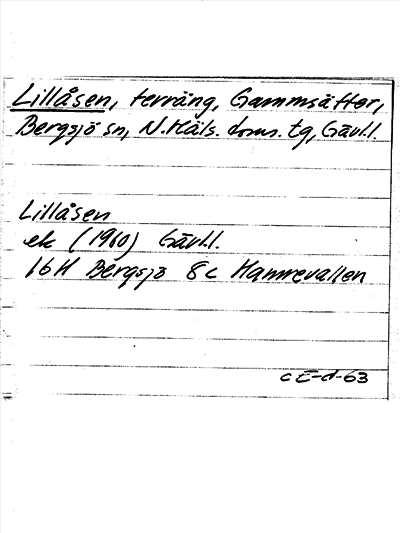 Lillåsen, terräng, Gammsätter,
Bergsjö sn, N.Häls. doms. tg, Gävl.l.
Lillåsen
ek (1960) Gävl.l.
16H Bergsjö 8c Hamrevallen
CE-d-63